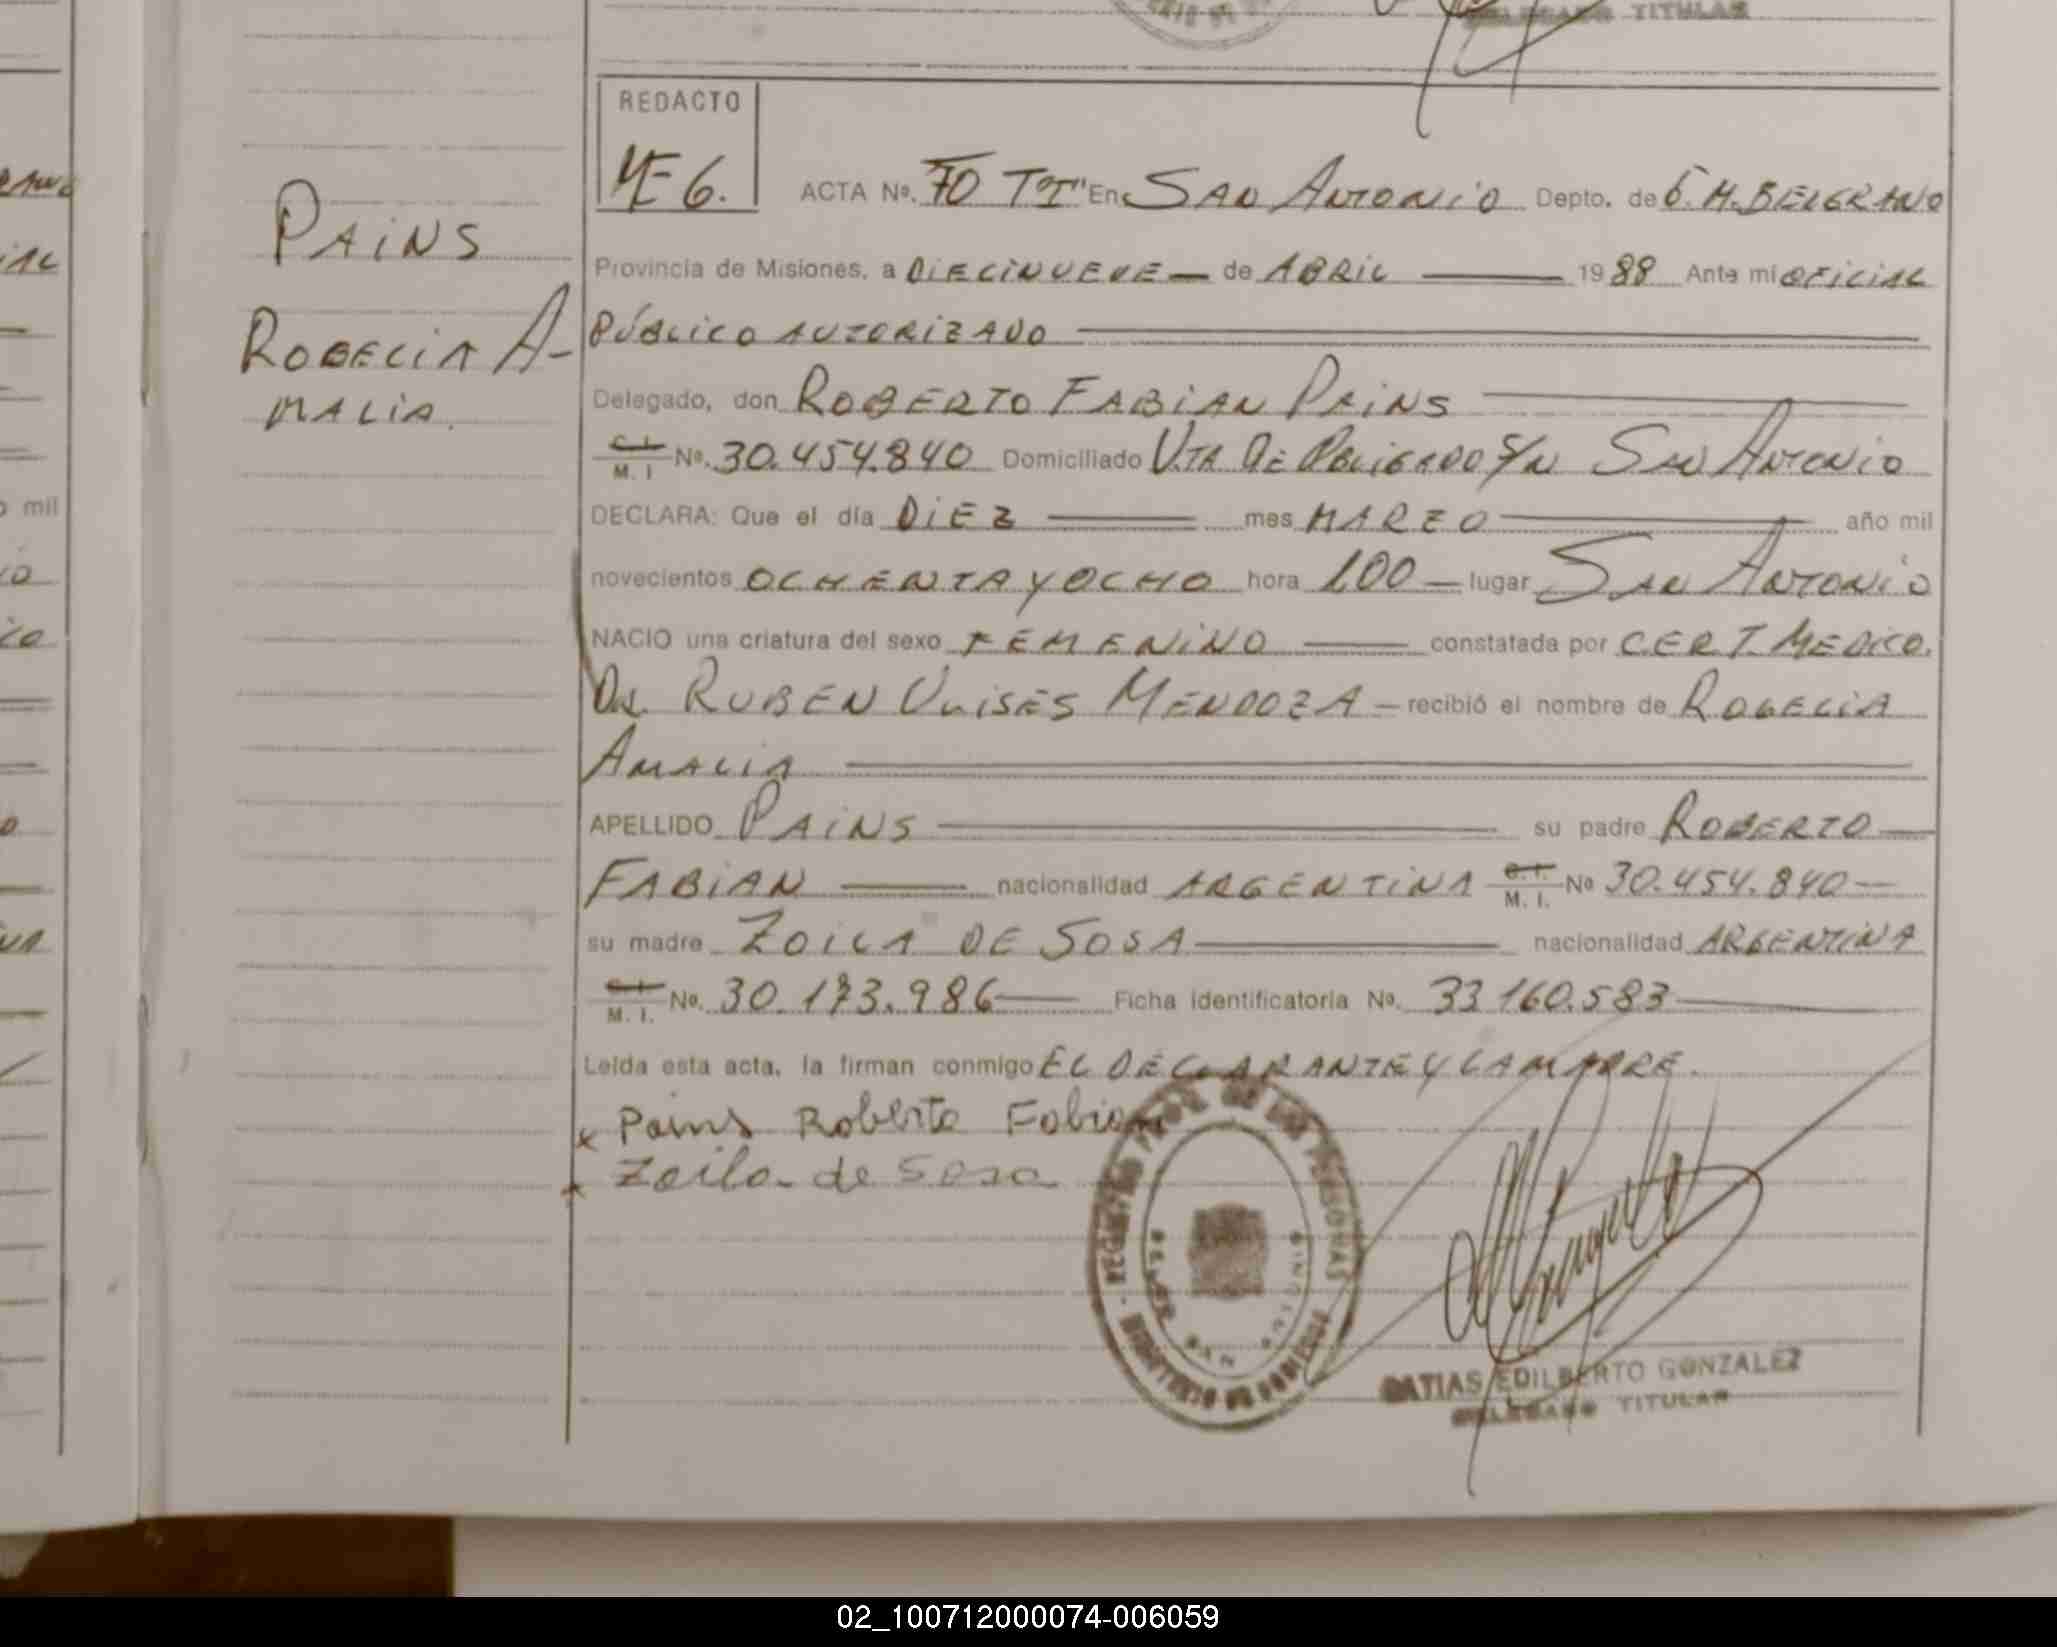 DELEGADO TITULAR
REDACTO
MEG.
ACTA Nº. 70 Tº I" En SAN ANTONIO Depto. de G. M. BELGRANO
Provincia de Misiones, a DIECINUEVE — de ABRIL — 1988 Ante mi OFICIAL
PÚBLICO AUTORIZADO
Delegado, don ROBERTO FABIAN PAINS
C. I.
M. I Nº. 30.454.840 Domiciliado V.TA DE OBLIGADO S/N SAN ANTONIO
DECLARA: Que el día DIEZ — mes MARZO — año mil
novecientos OCHENTA Y OCHO hora 1,00 — lugar SAN ANTONIO
NACIO una criatura del sexo FEMENINO — constatada por CERT. MEDICO.
DR. RUBEN ULISES MENDOZA — recibió el nombre de ROGELIA
AMALIA
APELLIDO PAINS — su padre ROBERTO —
FABIAN — nacionalidad ARGENTINA C. I.
M. I. Nº 30.454.840 —
su madre ZOILA DE SOSA — nacionalidad ARGENTINA
C. I.
M. I. Nº. 30.173.986 — Ficha identificatoria Nº. 33160.583 —
Leída esta acta, la firman conmigo EL DECLARANTE Y LA MADRE.
x Pains Roberto Fabian
x Zoila de Sosa
REGISTRO PROV. DE LAS PERSONAS
MINISTERIO DE GOBIERNO
MATIAS EDILBERTO GONZALEZ
DELEGADO TITULAR
PAINS
ROGELIA A-
MALIA.
o mil
02_100712000074-006059